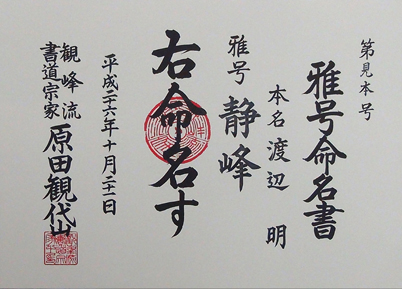 第見本号
雅号命名書
本名 渡辺 明
雅号 静峰
右命名す
平成二十六年十月二十一日
観峰流
書道宗家 原田観代山